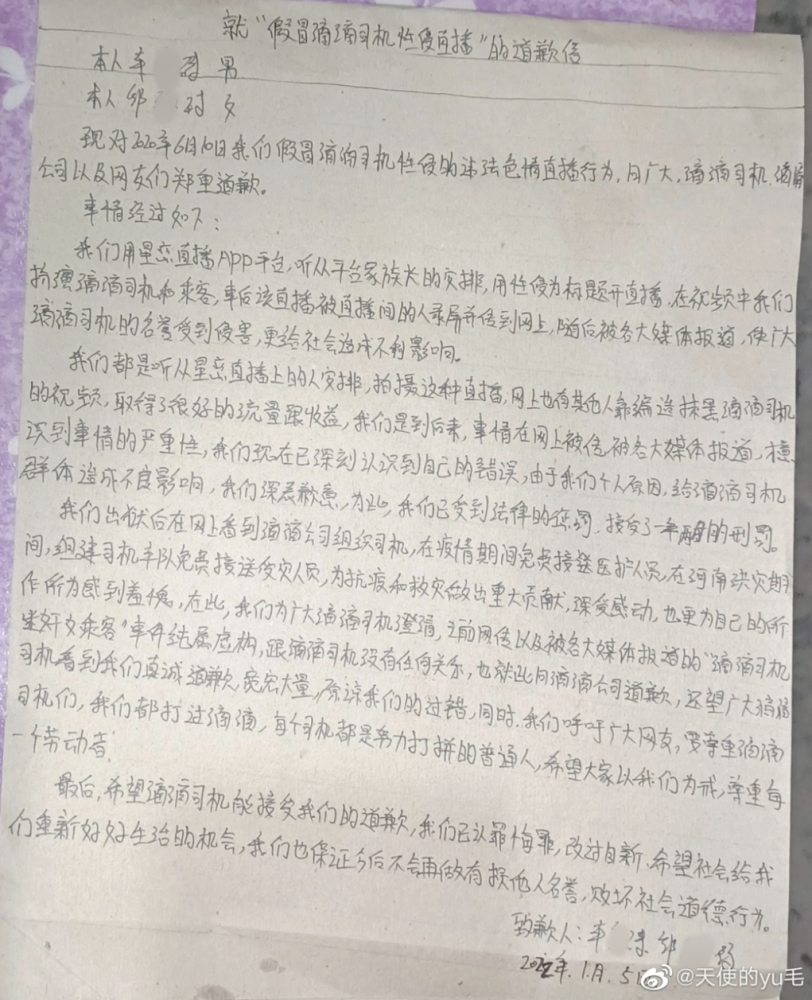 就“假冒滴滴司机性侵直播”的道歉信
本人车 男
本人邹 女
现对2020年6月10日我们假冒滴滴司机性侵的违法色情直播行为,向广大,滴滴司机、滴滴
公司以及网友们郑重道歉。
事情经过如下:
我们用星恋直播APP平台,听从平台家族长的安排,用性侵为标题开直播,在视频中我们
扮演滴滴司机和乘客,事后该直播被直播间的人录屏并传到网上,随后被各大媒体报道,使广大
滴滴司机的名誉受到侵害,更给社会造成不利影响。
我们都是听从星恋直播上的人安排,拍摄这种直播,网上也有其他人靠编造抹黑滴滴司机
的视频,取得了很好的流量跟收益,我们是到后来,事情在网上被传,被各大媒体报道,才意
识到事情的严重性,我们现在已深刻认识到自己的错误,由于我们个人原因,给滴滴司机
群体造成不良影响,我们深表歉意,为此,我们已受到法律的惩罚,接受了一年的刑罚。
我们出狱后在网上看到滴滴公司组织司机,在疫情期间免费接送医护人员,在河南洪灾期
间,组建司机车队免费接送受灾人员,为抗疫和救灾做出重大贡献,深受感动,也更为自己的所
作所为感到羞愧,在此,我们为广大滴滴司机澄清,之前网传以及被各大媒体报道的“滴滴司机
迷奸女乘客”事件纯属虚构,跟滴滴司机没有任何关系,也就此向滴滴公司道歉,还望广大滴滴
司机看到我们真诚道歉,宽宏大量,原谅我们的过错,同时,我们呼吁广大网友,要尊重滴滴
司机们,我们都打过滴滴,每个司机都是努力打拼的普通人,希望大家以我们为戒,尊重每
一个劳动者。
最后,希望滴滴司机能接受我们的道歉,我们已认罪悔罪,改过自新,希望社会给我
们重新好好生活的机会,我们也保证今后不会再做有损他人名誉,败坏社会道德行为。
致歉人:车 邹
2022年.1.月.5
@天使的yu毛